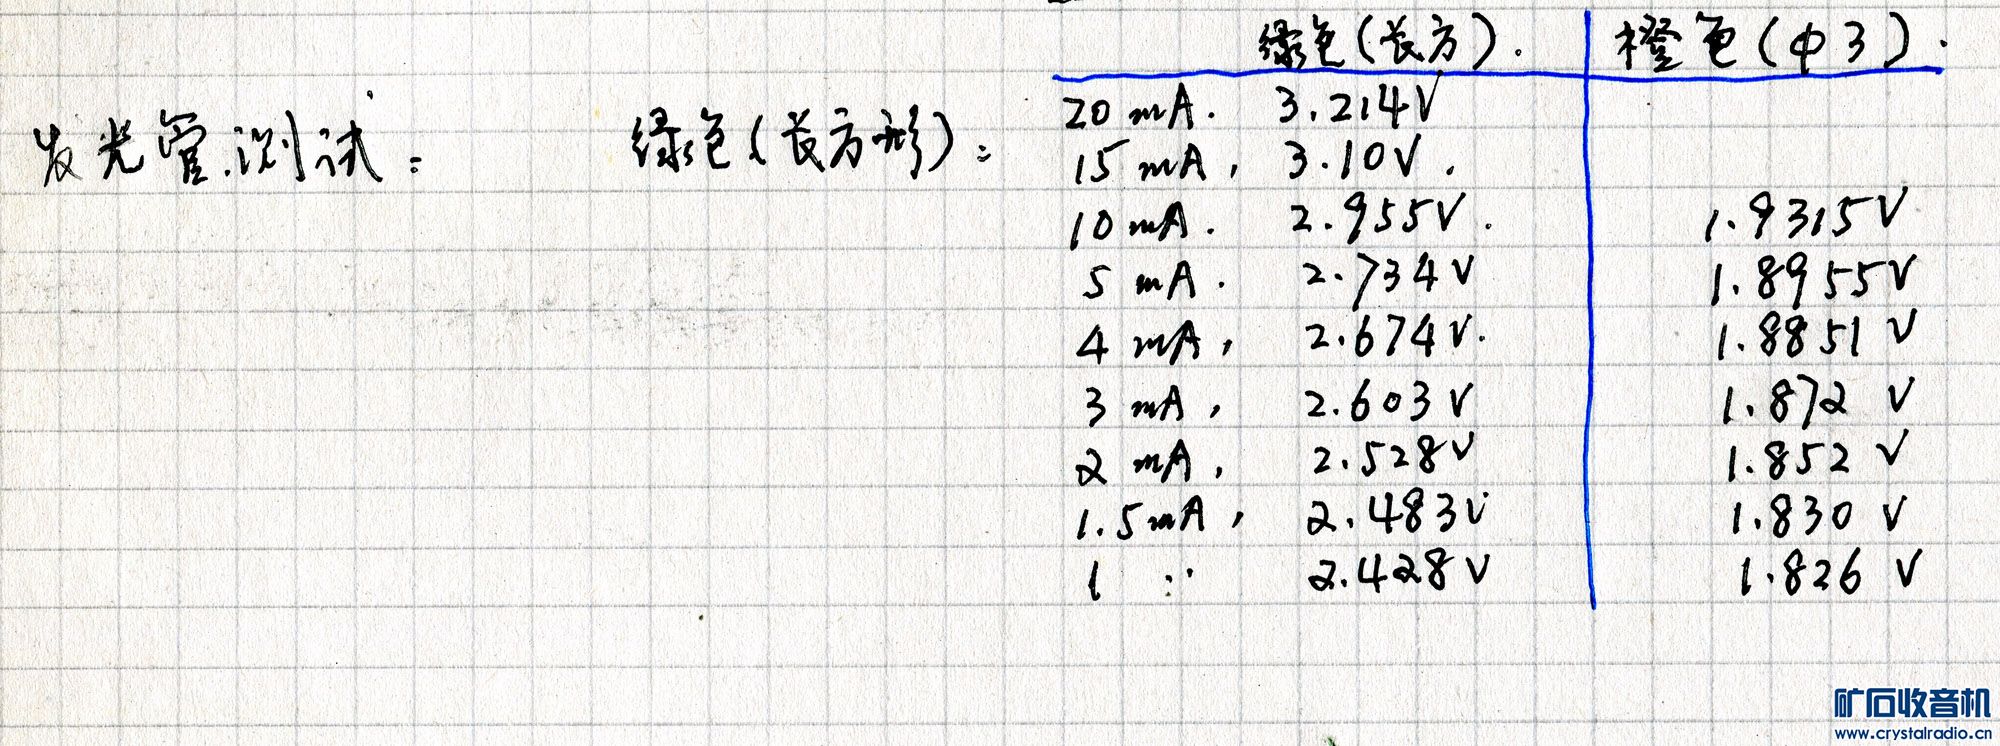 绿色(长方). 橙色(φ3).
发光管测试: 绿色(长方形):
20 mA. 3.214V
15 mA, 3.10V.
10 mA. 2.955V. 1.9315V
5 mA. 2.734V 1.8955V
4 mA, 2.674V. 1.8851V
3 mA, 2.603V 1.872 V
2 mA, 2.528V 1.852 V
1.5mA, 2.483V 1.830 V
1 ∵ 2.428V 1.826 V
矿石收音机
www.crystalradio.cn